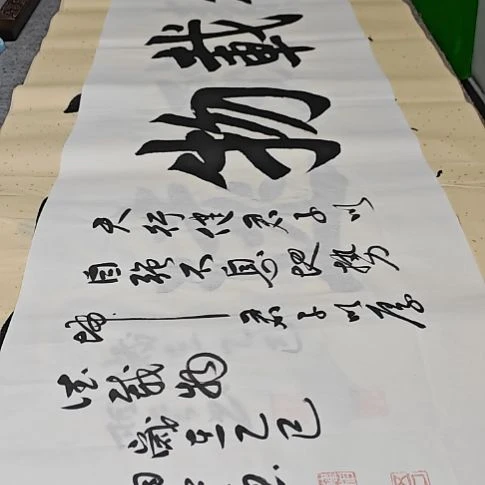 載
物
天行健君子以
自強不息地勢
坤君子以厚
德載物
歲在乙巳